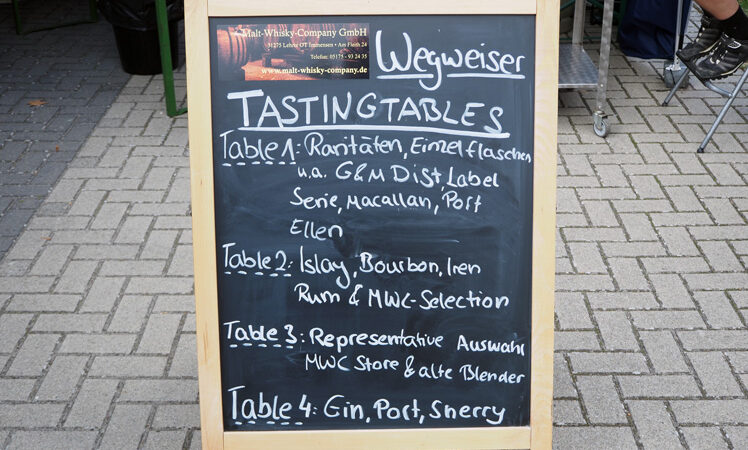 Malt-Whisky-Company GmbH
31275 Lehrte OT Immensen • Am Fleith 24
Telefon: 05175 - 93 24 35
www.malt-whisky-company.de
Wegweiser
TASTINGTABLES
Table 1: Raritäten, Einzelflaschen
u.a. G&M Dist, Label
Serie, Macallan, Port
Ellen
Table 2: Islay, Bourbon, Iren
Rum & MWC-Selection
Table 3: Representative Auswahl
MWC Store & alte Blender
Table 4: Gin, Port, Sherry